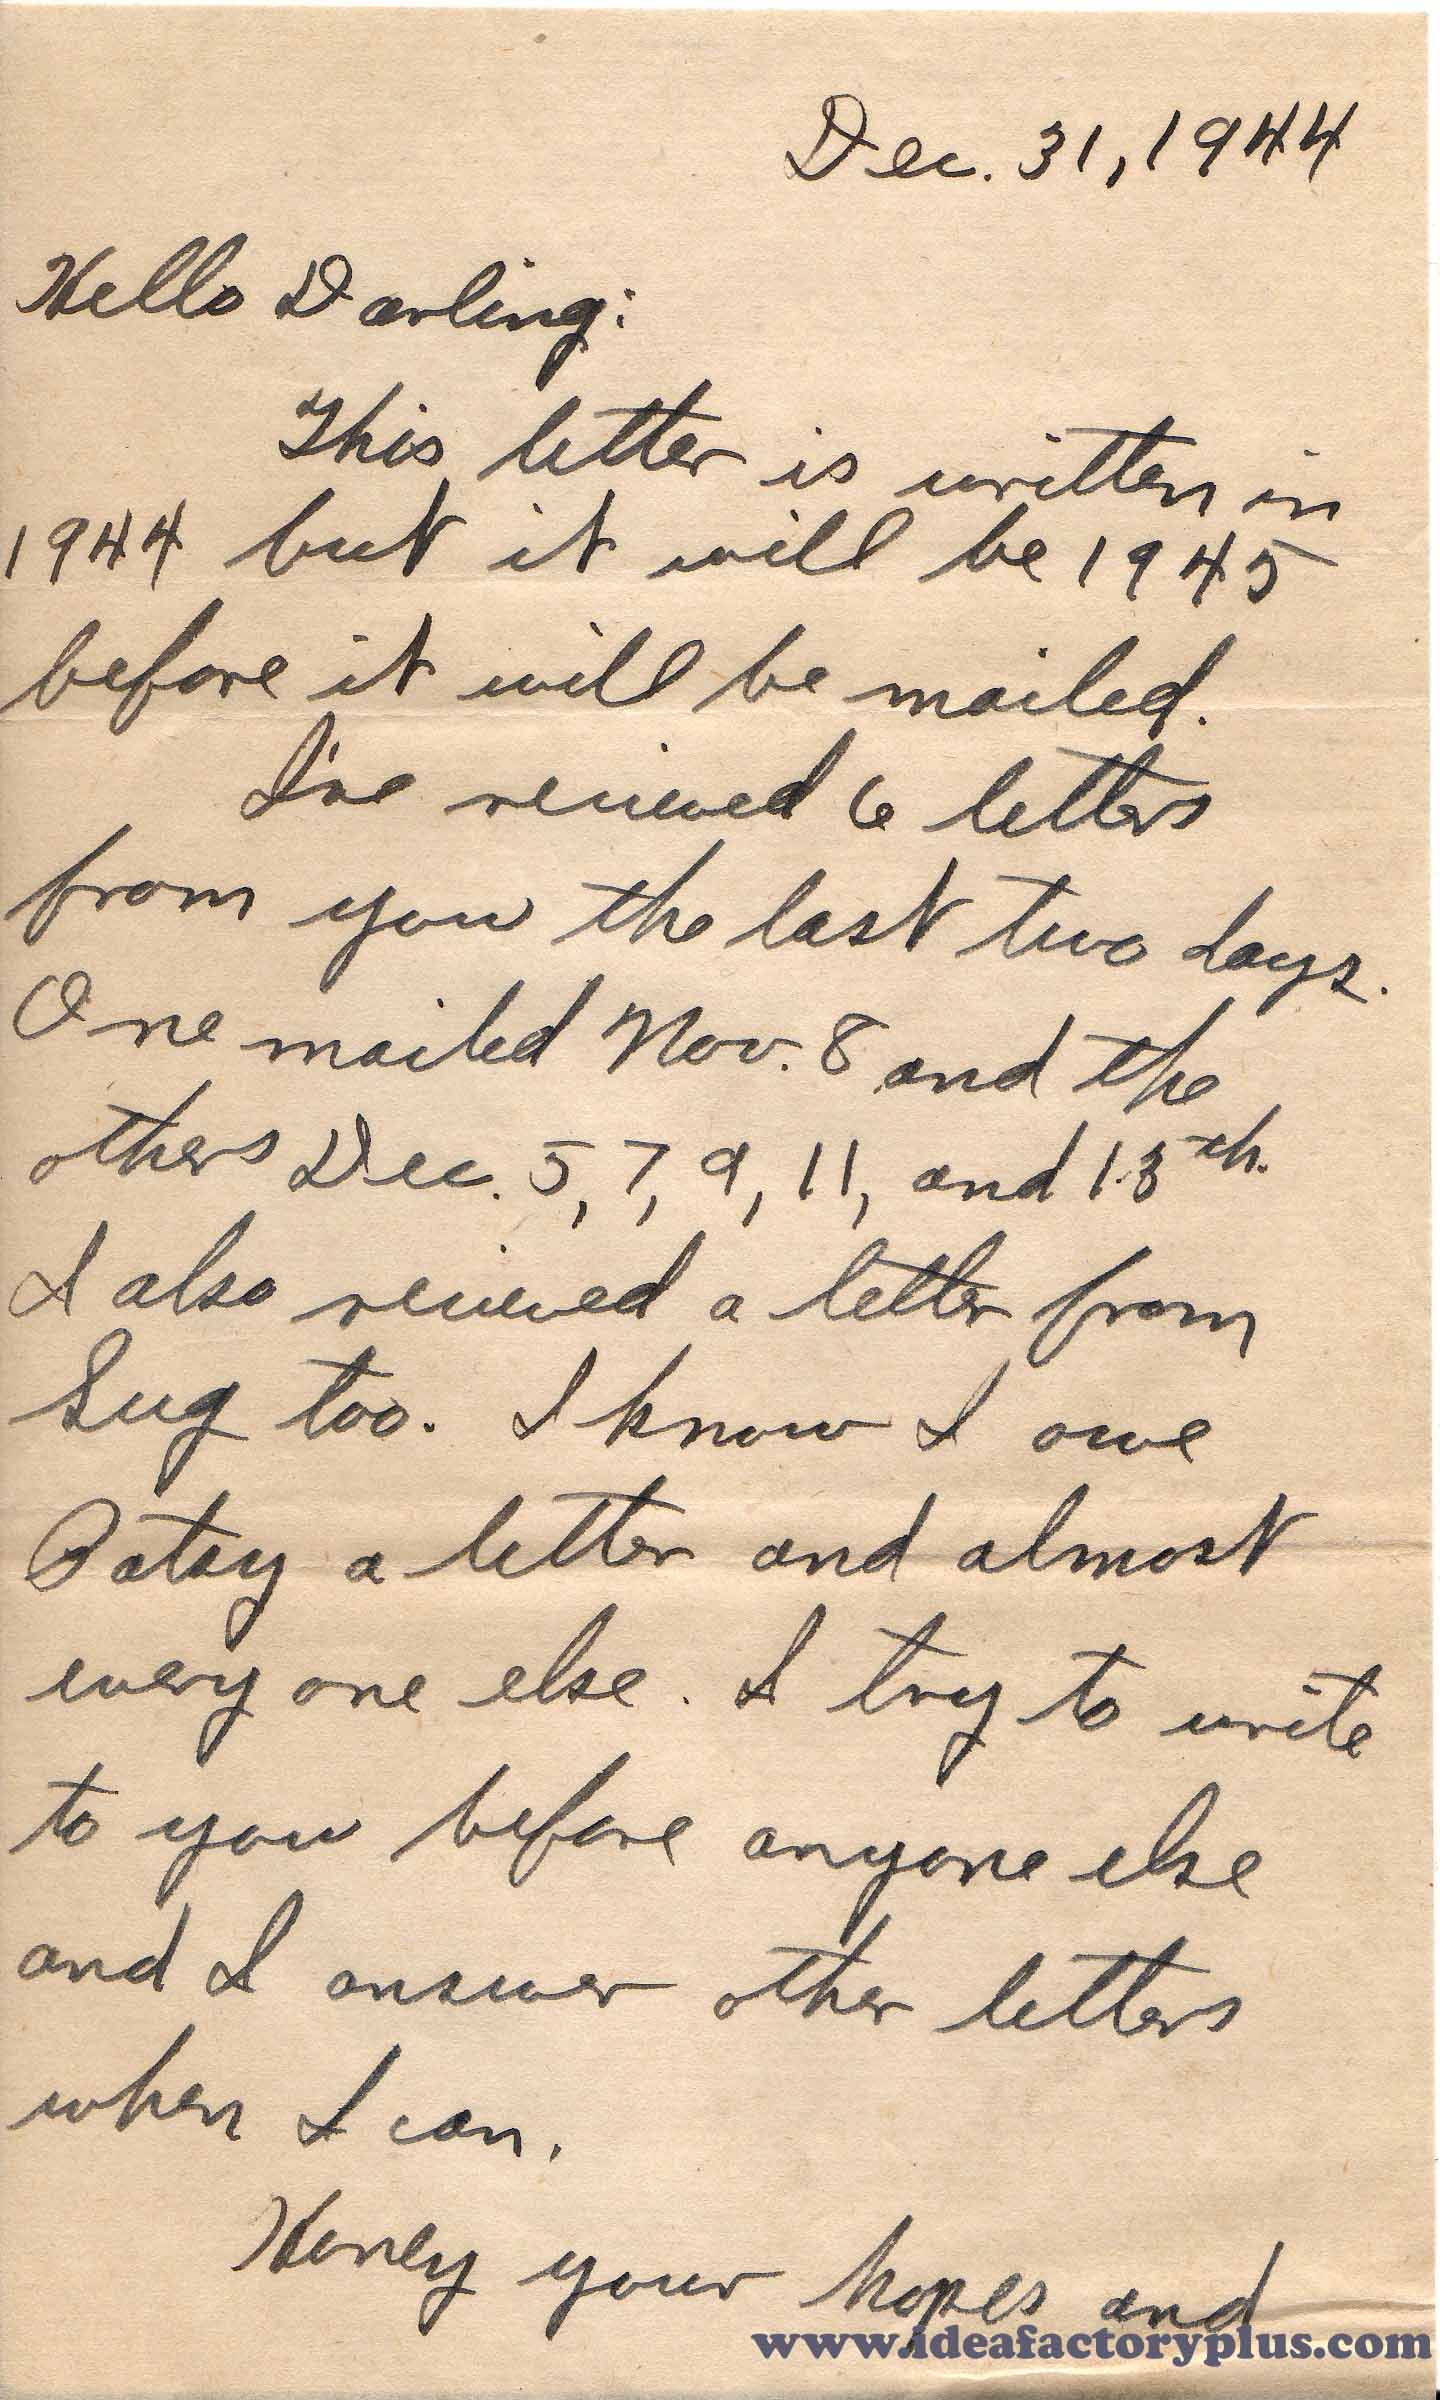 Dec. 31, 1944
Hello Darling:
This letter is written in
1944 but it will be 1945
before it will be mailed.
I've received 6 letters
from you the last two days.
One mailed Nov. 8 and the
others Dec. 5, 7, 9, 11, and 13th.
I also received a letter from
Sug too. I know I owe
Patsy a letter and almost
every one else. I try to write
to you before anyone else
and I answer other letters
when I can.
Honey your hopes and
www.ideafactoryplus.com